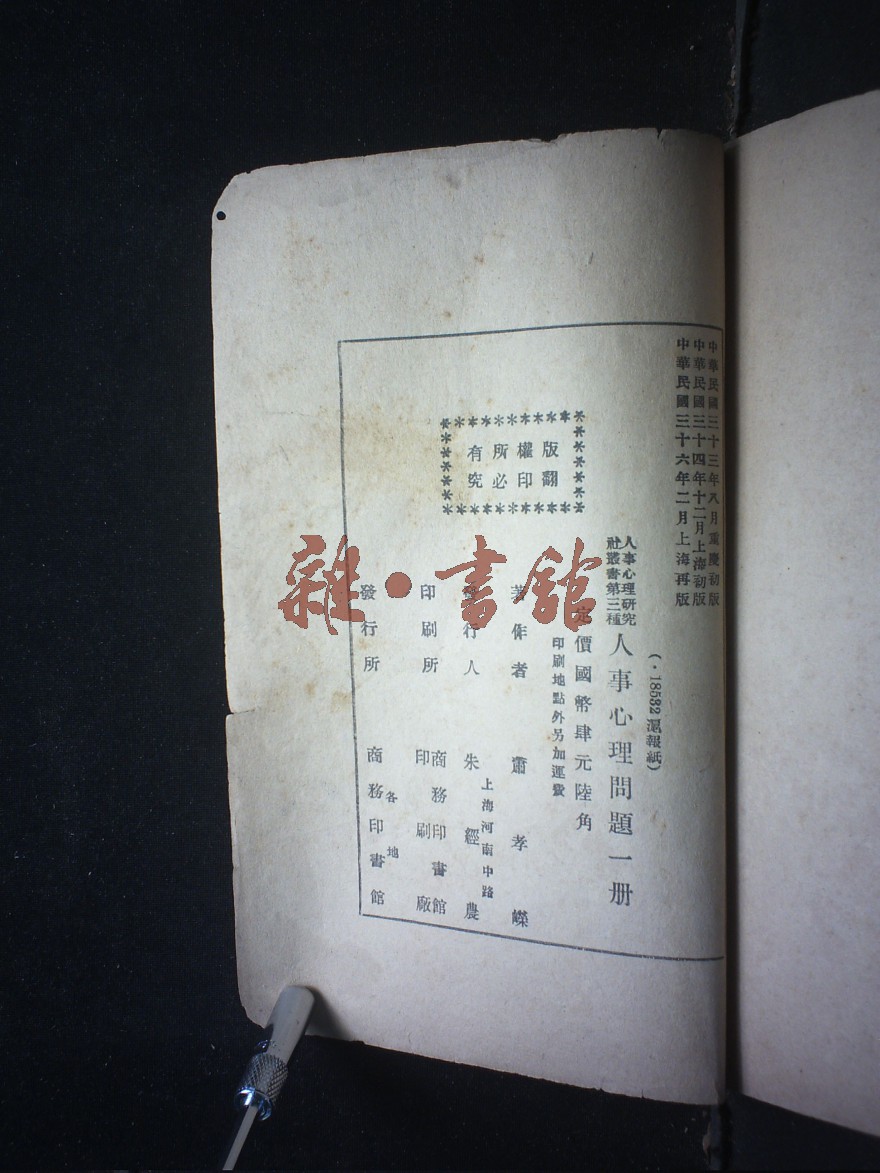 中華民國三十三年八月重慶初版
中華民國三十四年十二月上海初版
中華民國三十六年二月上海再版
(·18532 滬報紙)
人事心理研究
社叢書第三種
人事心理問題一册
定價國幣肆元陸角
印刷地點外另加運費
版權所有
翻印必究
著作者 蕭孝嶸
上海河南中路
發行人 朱經農
印刷所 商務印書館
印刷廠
發行所 各地
商務印書館
雜·書館